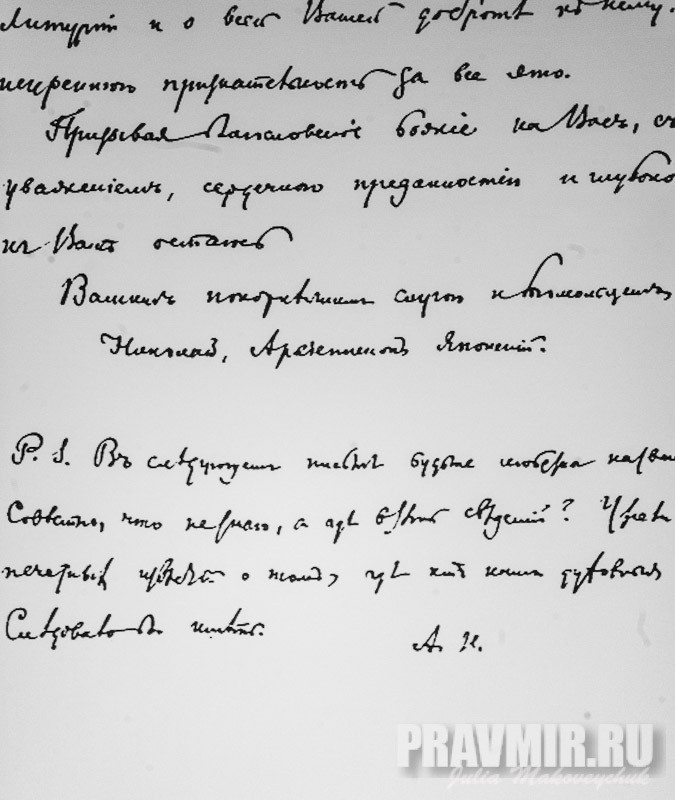 Литургіи и о всей Вашей добротѣ къ нему.
искреннюю признательность за все это.
Призывая благословеніе божіе на Васъ, съ
уваженіемъ, сердечною преданностію и глубоко
къ Вамъ остаюсь
Вашимъ покорнѣйшимъ слугою и богомольцемъ
Николай, Архіепископъ Японскій.
P. S. Въ слѣдующемъ письмѣ будьте любезны
что не знаю, а гдѣ взять свѣдений?
о томъ, гдѣ
Слѣдовало имѣть.
А. Н.
PRAVMIR.RU
Julia Makoveychuk